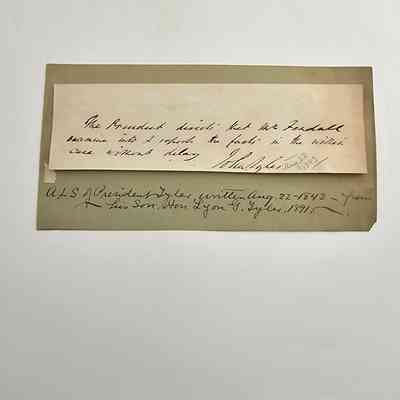 The President directs that Mr Fendall
examine into & report the facts in the within
case without delay John Tyler Aug 22
1843
ALS of President Tyler, written Aug. 22-1843 - from
his Son, Hon. Lyon G. Tyler, 1891